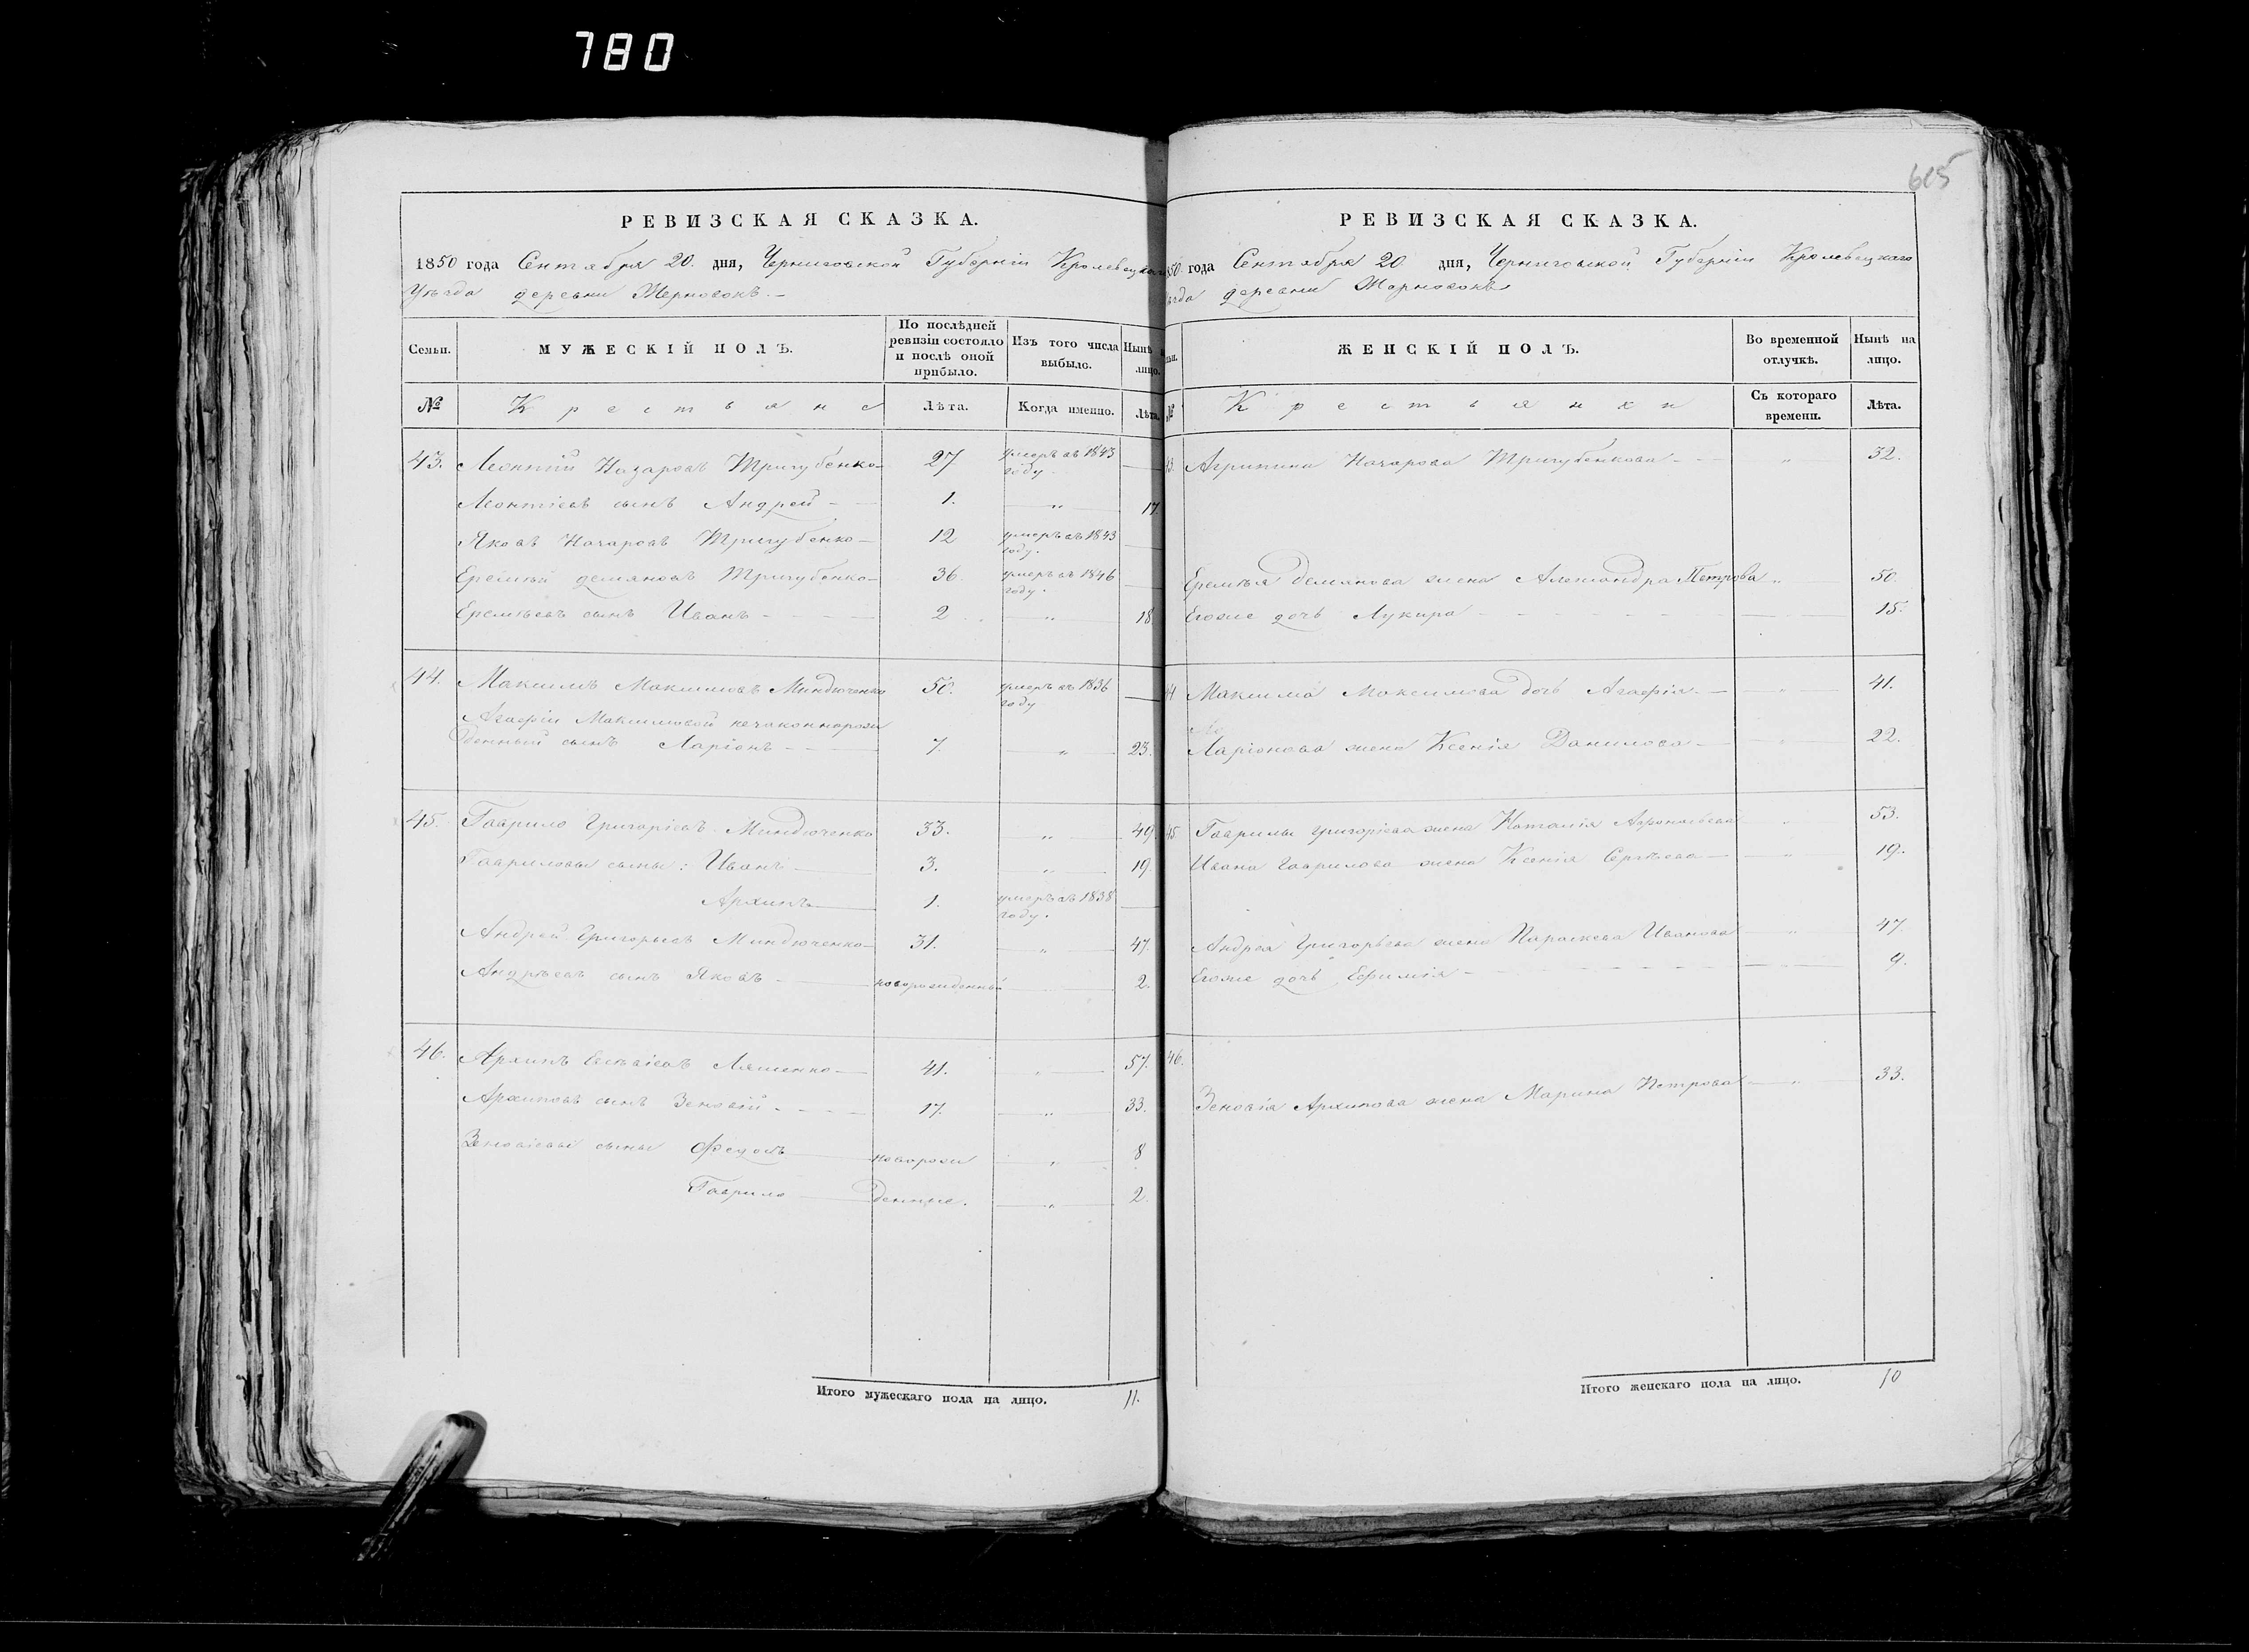 780
605
РЕВИЗСКАЯ СКАЗКА.
1850 года Сентября 20. дня, Черниговской Губерніи Кролевецкаго
Уѣзда деревни
Семьи. МУЖЕСКІЙ ПОЛЪ. По послѣдней ревизіи состояло и послѣ оной прибыло. Изъ того числа выбыло. Нынѣ на лицо.
№ Крестьяне Лѣта. Когда именно. Лѣта.
43. Леонтий Назаровъ Тригубенко 27 умеръ въ 1843 году
Леонтіевъ сынъ Андрей 1. " 17.
Яковъ Назаровъ Тригубенко 12 умеръ въ 1843 году.
Еремѣй демяновъ Тригубенко 36. умеръ въ 1846 году.
Еремѣевъ сынъ Иванъ 2 " 18
44. Максимъ Максимовъ Миндюченко 50. умеръ въ 1836 году
Агафіи Максимовой незаконнорож
денный сынъ Ларіонъ 7. " 23.
45. Гаврило Григоріевъ Миндюченко 33. " 49
Гавриловы сыны: Иванъ 3. " 19.
Архипъ 1. умеръ въ 1838 году.
Андрей Григорьевъ Миндюченко 31. " 47
Андрѣевъ сынъ Яковъ новорожденный 2.
46. Архипъ Евсѣвіевъ Ляшенко 41. " 57.
Архиповъ сынъ Зеновій 17. " 33.
Зеновіевы сыны Федотъ новорож " 8
Гаврило денные. " 2.
Итого мужескаго пола на лицо. 11.
РЕВИЗСКАЯ СКАЗКА.
50 года Сентября 20 дня, Черниговской Губерніи Кролевецкаго
ѣзда деревни
ьи. ЖЕНСКІЙ ПОЛЪ. Во временной отлучкѣ. Нынѣ на лицо.
№ Крестьянки Съ котораго времени. Лѣта.
43. Агрипина Назарова Тригубенкова " 32.
Еремѣя Демянова жена Александра Петрова " 50.
Егоже дочь Лукира 15.
44 Максима Максимова дочь Агафія " 41.
Ларіонова жена Ксенія Данилова " 22.
45 Гаврилы Григоріева жена Наталія Афонасьева " 53.
Ивана Гаврилова жена Ксенія Сергѣева " 19.
Андрея Григорьева жена Параскева Иванова " 47.
Егоже дочь Ефимія 9.
46.
Зеновія Архипова жена Марина Петрова " 33.
Итого женскаго пола на лицо. 10